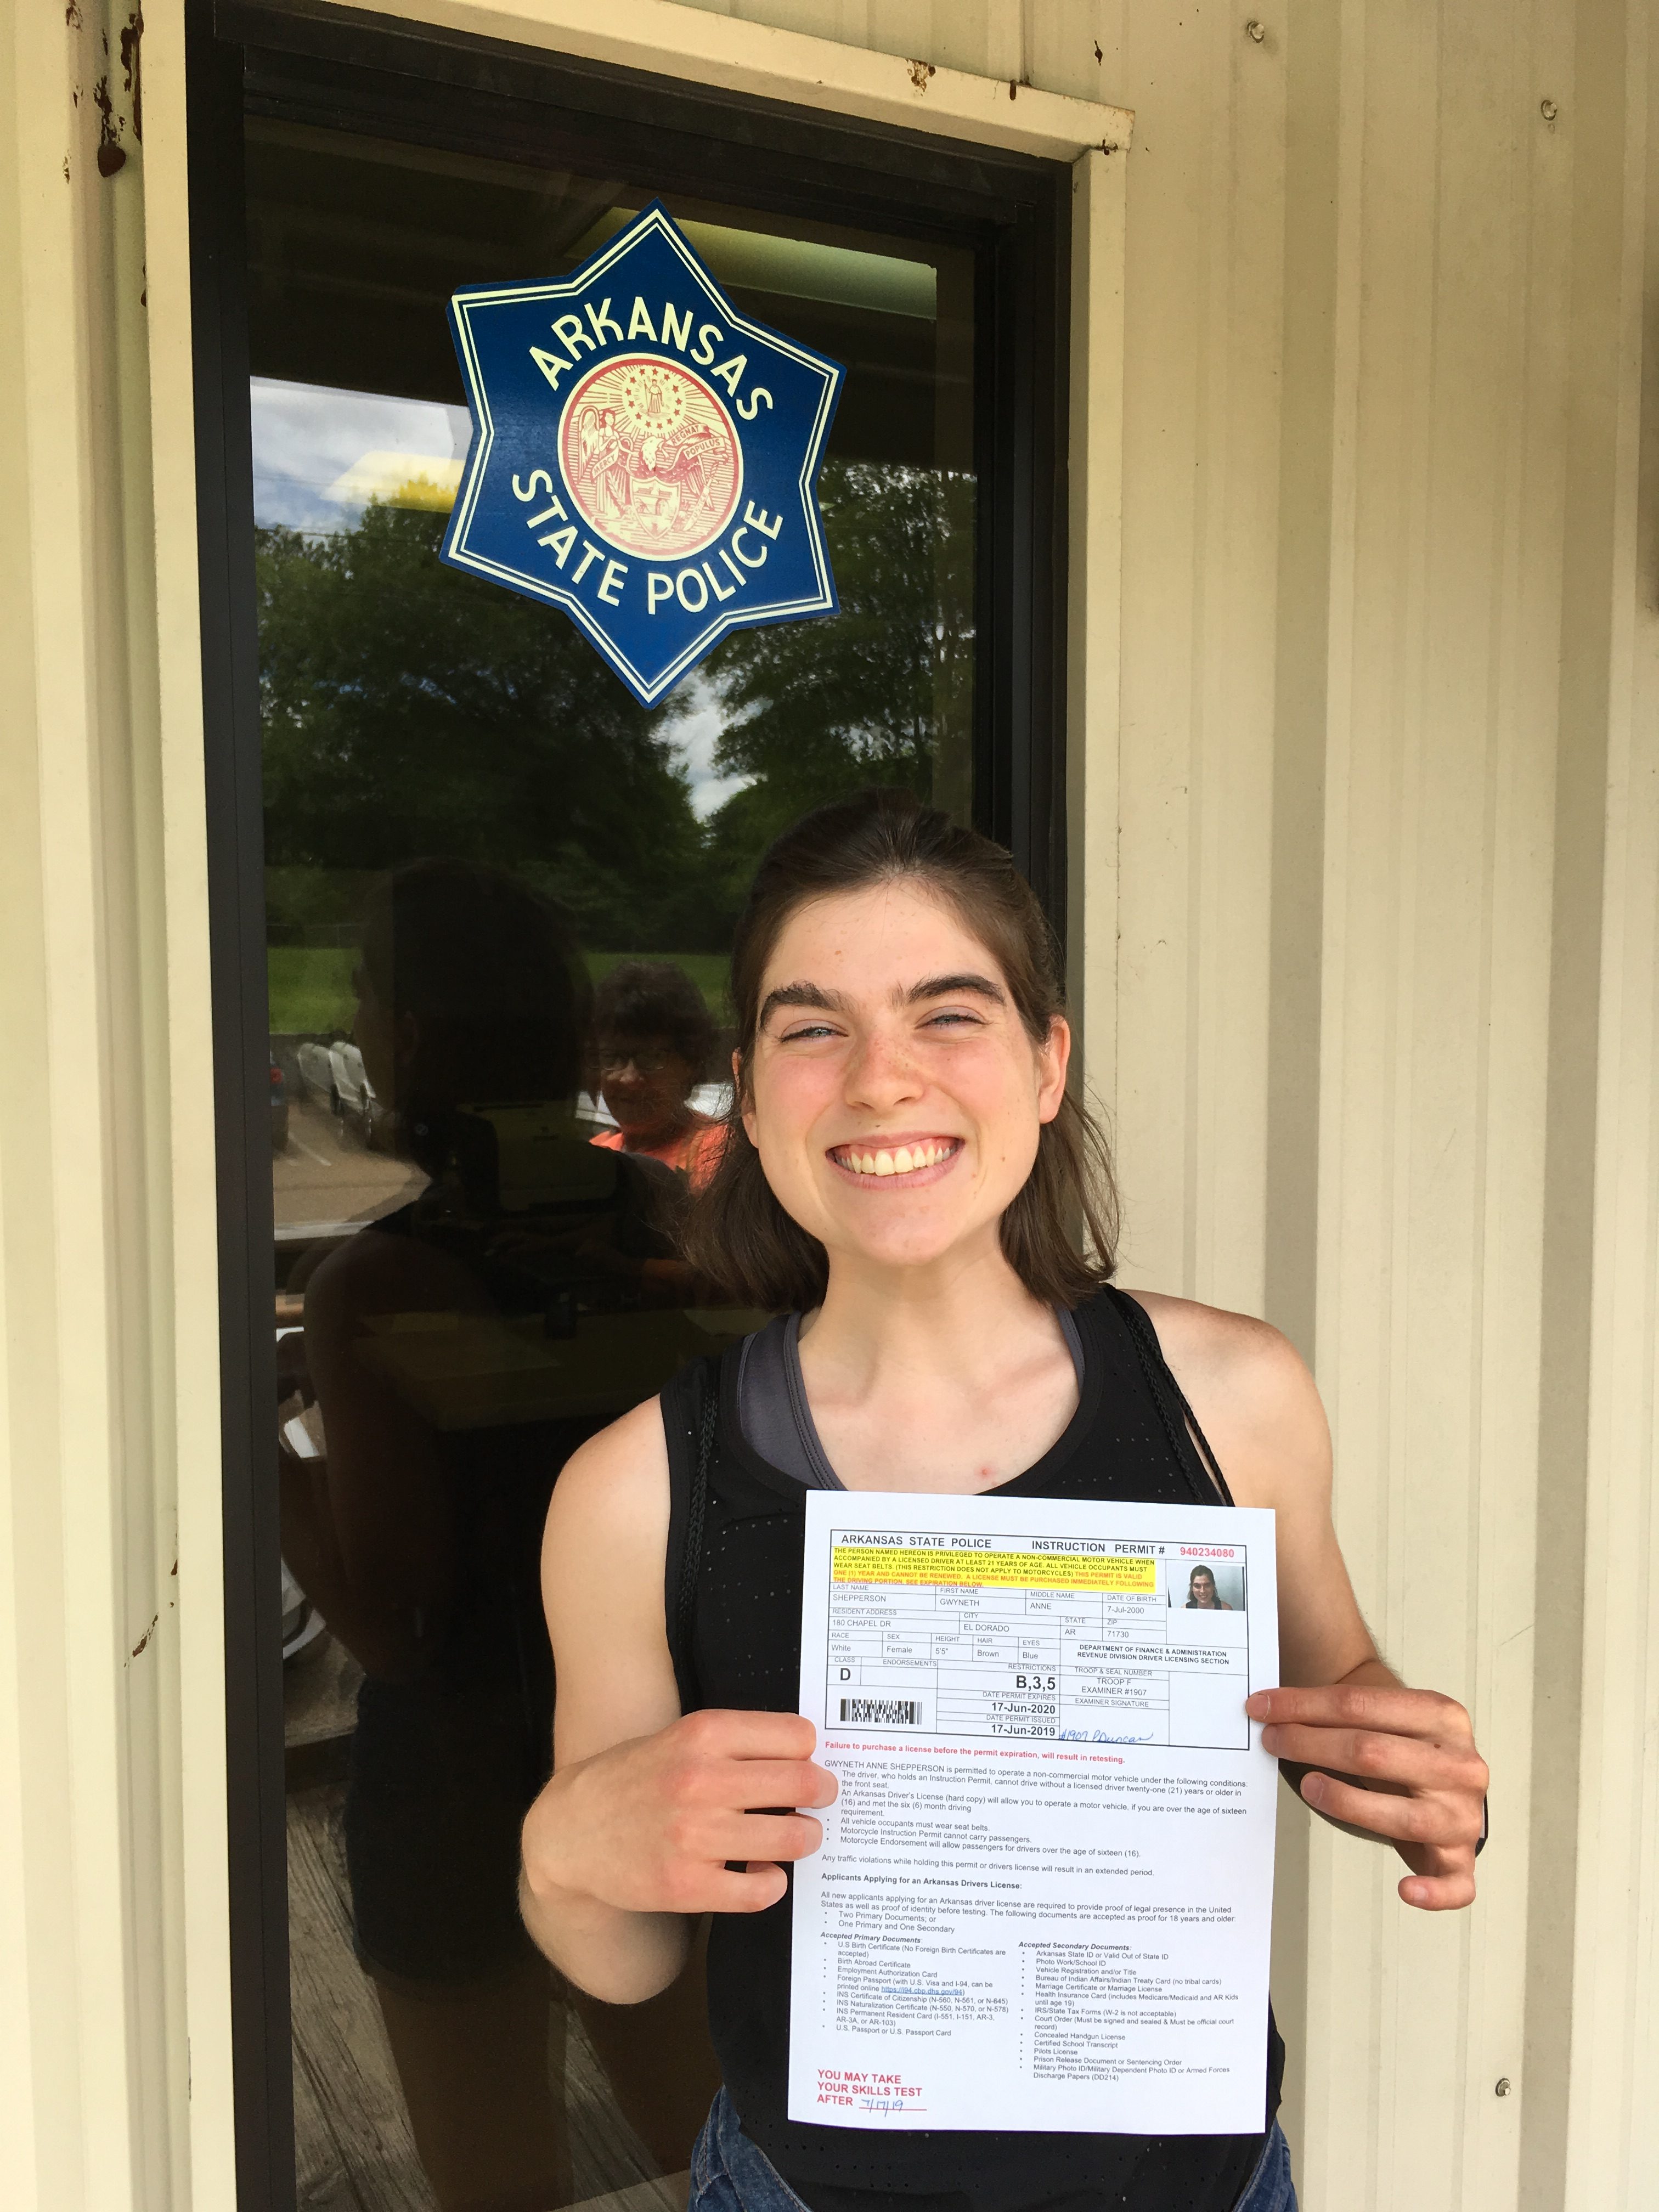 ARKANSAS
REGNAT
POPULUS
STATE POLICE
ARKANSAS STATE POLICE INSTRUCTION PERMIT # 940234080
THE PERSON NAMED HEREON IS PRIVILEGED TO OPERATE A NON-COMMERCIAL MOTOR VEHICLE WHEN
ACCOMPANIED BY A LICENSED DRIVER AT LEAST 21 YEARS OF AGE. ALL VEHICLE OCCUPANTS MUST
WEAR SEAT BELTS. (THIS RESTRICTION DOES NOT APPLY TO MOTORCYCLES) THIS PERMIT IS VALID
ONE (1) YEAR AND CANNOT BE RENEWED. A LICENSE MUST BE PURCHASED IMMEDIATELY FOLLOWING
THE DRIVING PORTION. SEE EXPIRATION BELOW.
LAST NAME FIRST NAME MIDDLE NAME DATE OF BIRTH
SHEPPERSON GWYNETH ANNE 7-Jul-2000
RESIDENT ADDRESS CITY STATE ZIP
180 CHAPEL DR EL DORADO AR 71730
RACE SEX HEIGHT HAIR EYES
White Female 5'5" Brown Blue
DEPARTMENT OF FINANCE & ADMINISTRATION
REVENUE DIVISION DRIVER LICENSING SECTION
CLASS ENDORSEMENTS RESTRICTIONS TROOP & SEAL NUMBER
D B,3,5 TROOP F
EXAMINER #1907
DATE PERMIT EXPIRES EXAMINER SIGNATURE
17-Jun-2020
DATE PERMIT ISSUED
17-Jun-2019 #1907 P Duncan
Failure to purchase a license before the permit expiration, will result in retesting.
GWYNETH ANNE SHEPPERSON is permitted to operate a non-commercial motor vehicle under the following conditions:
• The driver, who holds an Instruction Permit, cannot drive without a licensed driver twenty-one (21) years or older in
the front seat.
• An Arkansas Driver's License (hard copy) will allow you to operate a motor vehicle, if you are over the age of sixteen
(16) and met the six (6) month driving
requirement.
• All vehicle occupants must wear seat belts.
• Motorcycle Instruction Permit cannot carry passengers.
• Motorcycle Endorsement will allow passengers for drivers over the age of sixteen (16).
Any traffic violations while holding this permit or drivers license will result in an extended period.
Applicants Applying for an Arkansas Drivers License:
All new applicants applying for an Arkansas driver license are required to provide proof of legal presence in the United
States as well as proof of identity before testing. The following documents are accepted as proof for 18 years and older:
• Two Primary Documents; or
• One Primary and One Secondary
Accepted Primary Documents:
• U.S Birth Certificate (No Foreign Birth Certificates are
accepted)
• Birth Abroad Certificate
• Employment Authorization Card
• Foreign Passport (with U.S. Visa and I-94, can be
printed online https://i94.cbp.dhs.gov/94)
• INS Certificate of Citizenship (N-560, N-561, or N-645)
• INS Naturalization Certificate (N-550, N-570, or N-578)
• INS Permanent Resident Card (I-551, I-151, AR-3,
AR-3A, or AR-103)
• U.S. Passport or U.S. Passport Card
Accepted Secondary Documents:
• Arkansas State ID or Valid Out of State ID
• Photo Work/School ID
• Vehicle Registration and/or Title
• Bureau of Indian Affairs/Indian Treaty Card (no tribal cards)
• Marriage Certificate or Marriage License
• Health Insurance Card (includes Medicare/Medicaid and AR Kids
until age 19)
• IRS/State Tax Forms (W-2 is not acceptable)
• Court Order (Must be signed and sealed & Must be official court
record)
• Concealed Handgun License
• Certified School Transcript
• Pilots License
• Prison Release Document or Sentencing Order
• Military Photo ID/Military Dependent Photo ID or Armed Forces
Discharge Papers (DD214)
YOU MAY TAKE
YOUR SKILLS TEST
AFTER 7/17/19